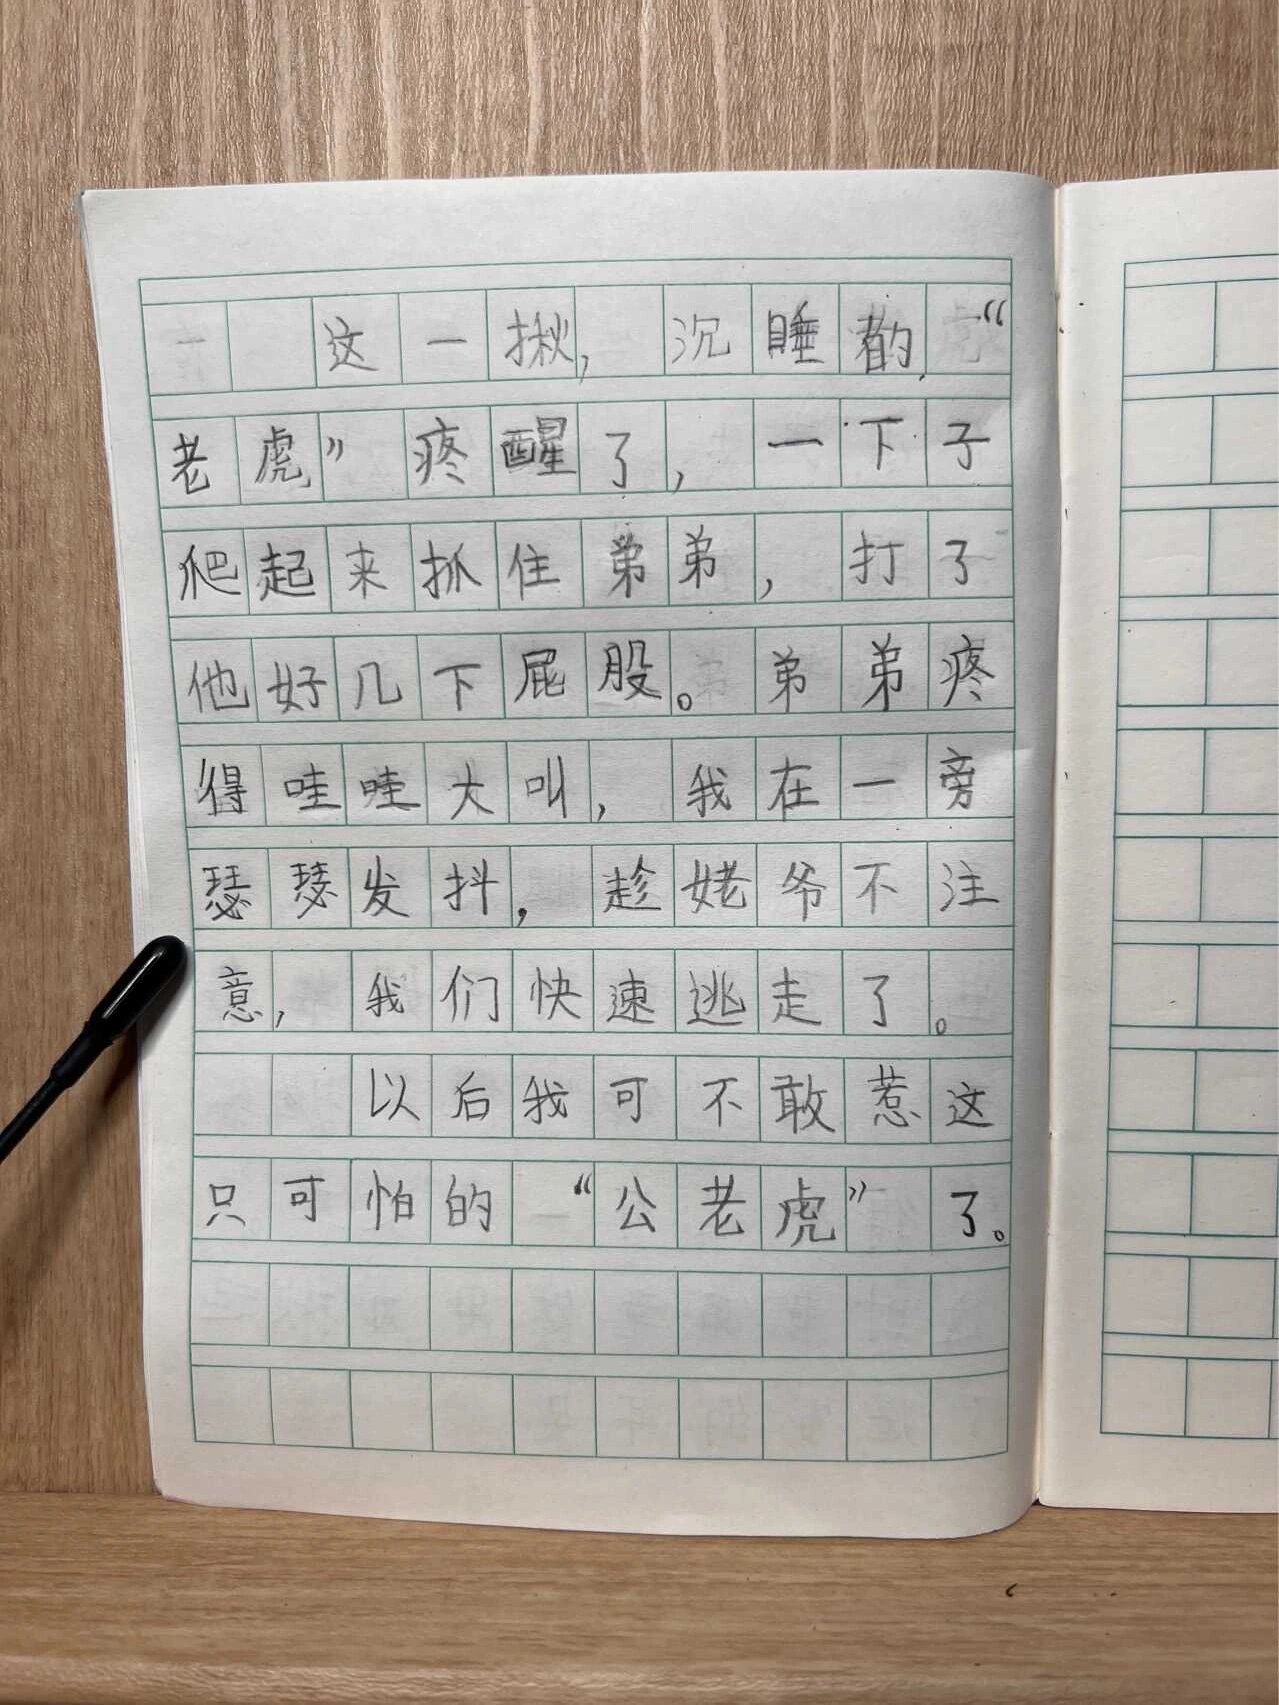 这一揪，沉睡着的“
老虎”疼醒了，一下子
爬起来抓住弟弟，打了
他好几下屁股。弟弟疼
得哇哇大叫，我在一旁
瑟瑟发抖，趁姥爷不注
意，我们快速逃走了。
以后我可不敢惹这
只可怕的“公老虎”了。